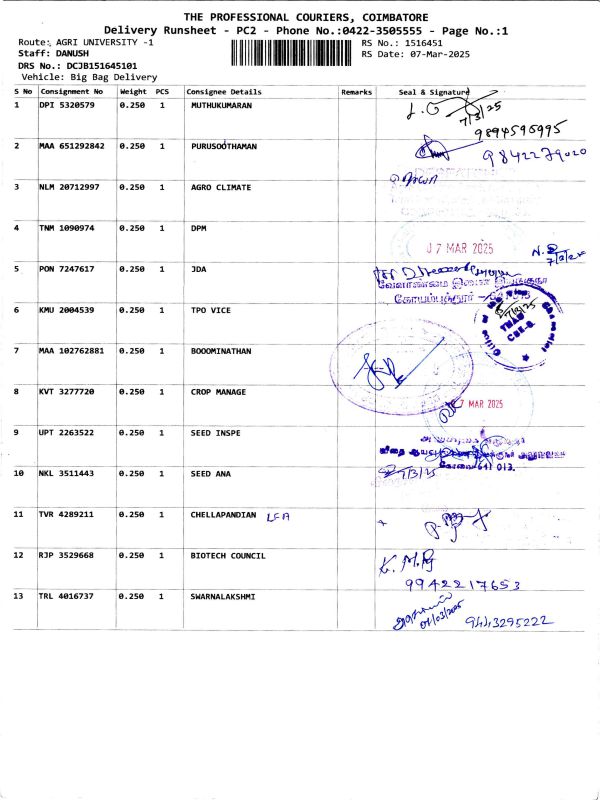 THE PROFESSIONAL COURIERS, COIMBATORE
Delivery Runsheet - PC2 - Phone No.:0422-3505555 - Page No.:1
Route: AGRI UNIVERSITY -1
RS No.: 1516451
Staff: DANUSH
RS Date: 07-Mar-2025
DRS No.: DCJB151645101
Vehicle: Big Bag Delivery
S No Consignment No Weight PCS Consignee Details Remarks Seal & Signature
1 DPI 5320579 0.250 1 MUTHUKUMARAN
7/3/25
9894595995
2 MAA 651292842 0.250 1 PURUSOOTHAMAN
9842279020
3 NLM 20712997 0.250 1 AGRO CLIMATE
4 TNM 1090974 0.250 1 DPM
07 MAR 2025
5 PON 7247617 1 0.250 JDA
கோயம்புத்தூர்
6 KMU 2004539 0.250 1 TPO VICE
7 MAA 102762881 0.250 1 BOOOMINATHAN
8 KVT 3277720 0.250 1 CROP MANAGE
7 MAR 2025
9 UPT 2263522 0.250 1 SEED INSPE
கோவை 641 013.
10 NKL 3511443 0.250 1 SEED ANA
7/3/25
11 TVR 4289211 0.250 1 CHELLAPANDIAN
12 RJP 3529668 0.250 1 BIOTECH COUNCIL
9942217653
13 TRL 4016737 0.250 1 SWARNALAKSHMI
07/03/2025
9443295222